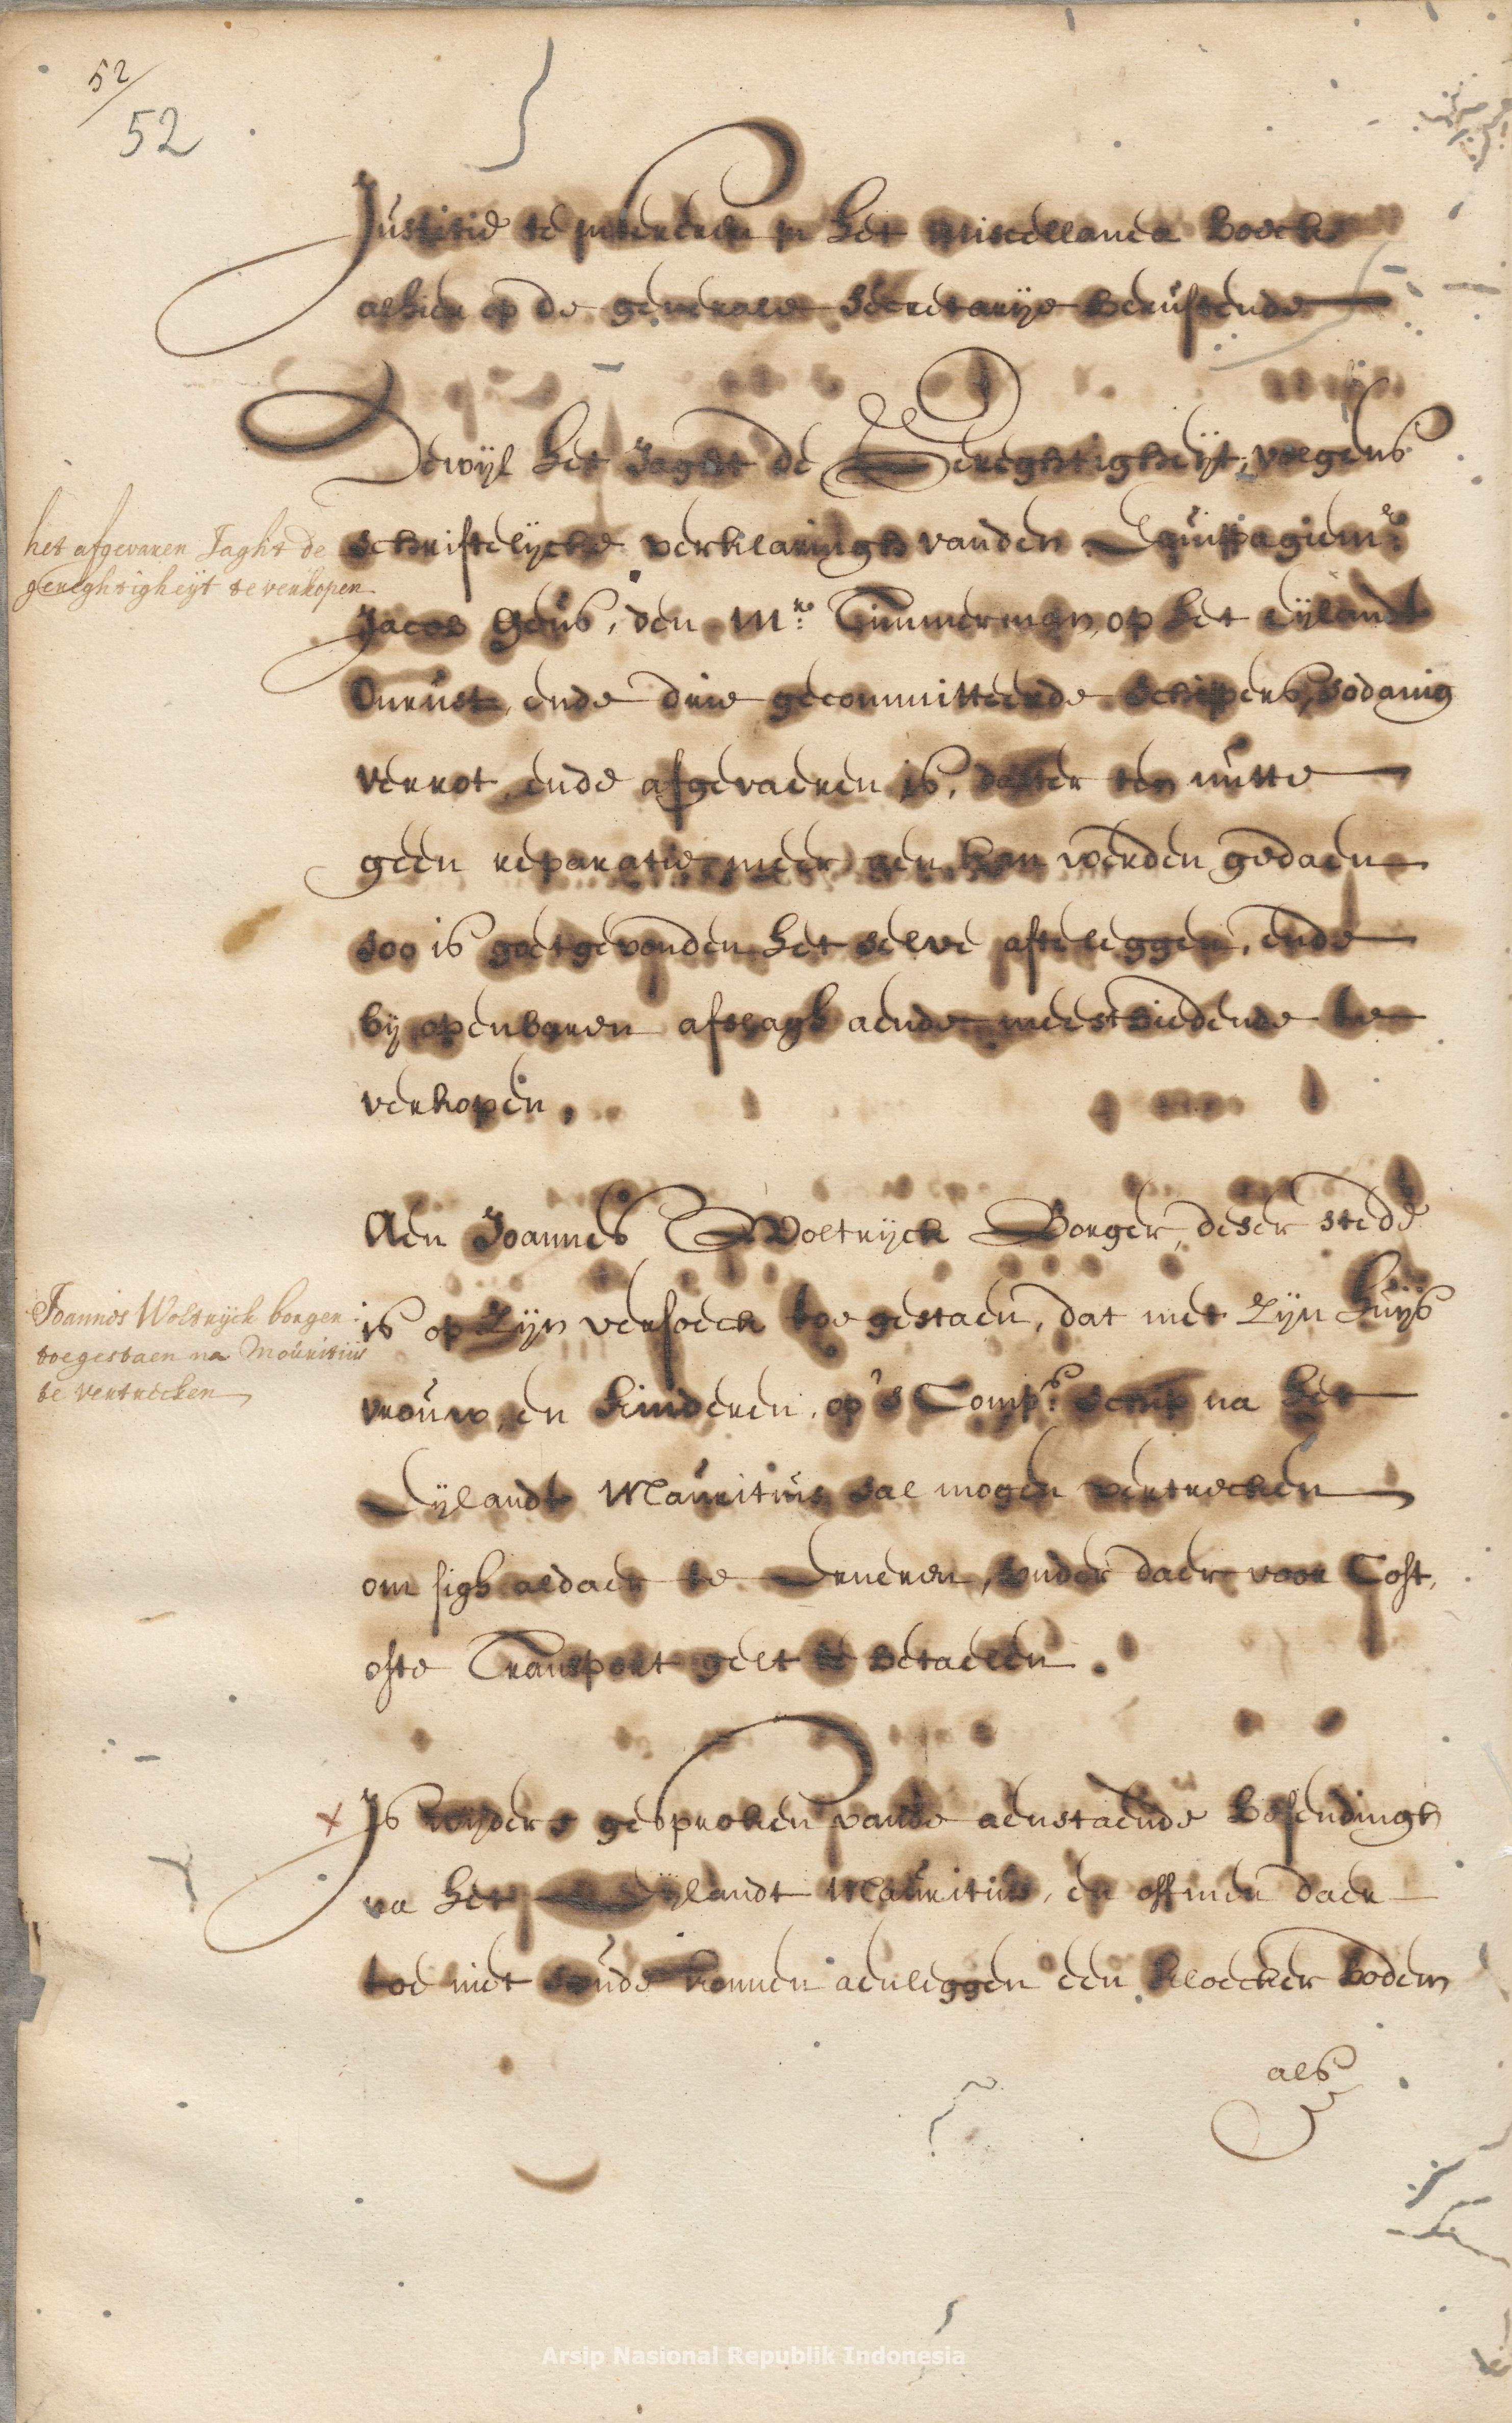 52
52
Justitie te inbereren in het miscellanea boeck
alhier op de generale secretarije berustende
Dewijl het Jaght de Gereghtigheijt, volgens
schriftelijcke verklaringh vanden Equipagiemr:
Jacob Geus, den Mr: Timmerman, op het eijlandt
Onrust, ende drie gecommitteerde schippers, sodanig
verrot, ende afgevaeren is, datter ten nutte
geen reparatie meer aen kan werden gedaen
soo is goetgevonden het selve afteleggen, ende
bij openbaren afslagh aende meestbiedende te
verkopen.
het afgevaren Jaght de
gereghtigheijt te verkopen
Aen Joannes Woltrijck Borger, deser stede
is op zijn versoeck toegestaen, dat met zijn huijs
vrouw, en kinderen, op 's Comps: schip na het
Eijlandt Mauritius sal mogen vertrecken
om sigh aldaer te Erneren, sonder daer voor Cost,
ofte Transport gelt te betaelen.
Joannes Woltrijck borger
toegestaen na Mauritius
te vertrecken
Is wijders gesproken vande aenstaende besendingh
na het Eijlandt Mauritius, en offmen daer
toe niet soude konnen aenleggen een kloecker bodem
als
Arsip Nasional Republik Indonesia